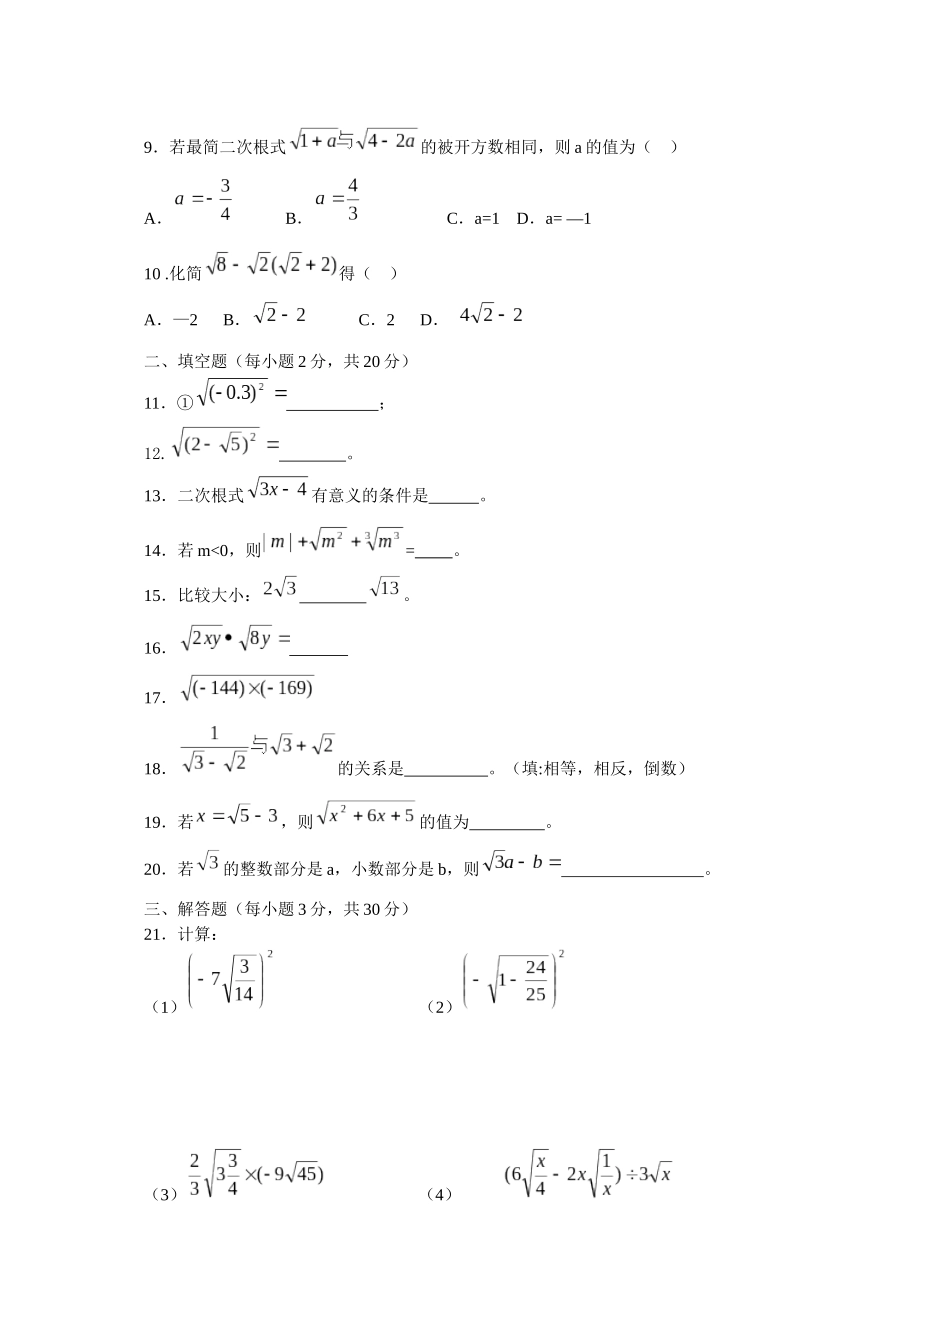 9．若最简二次根式 √(1+a) 与 √(4-2a) 的被开方数相同，则 a 的值为（ ）
A． a=-3/4 B． a=4/3 C．a=1 D．a= —1
10 .化简 √8-√2(√2+2) 得（ ）
A．—2 B． √2-2 C．2 D． 4√2-2
二、填空题（每小题 2 分，共 20 分）
11．① √((-0.3)²) =___________；
12. √((2-√5)²) =________。
13．二次根式 √(3x-4) 有意义的条件是______。
14．若 m<0，则 |m|+√(m²)+∛(m³) =_____。
15．比较大小： 2√3 ________ √13 。
16． √(2xy)•√(8y) =_______
17． √((-144)×(-169))
18． 1/(√3-√2) 与 √3+√2 的关系是__________。（填:相等，相反，倒数）
19．若 x=√5-3 ，则 √(x²+6x+5) 的值为_________。
20．若 √3 的整数部分是 a，小数部分是 b，则 √3a-b=_________________。
三、解答题（每小题 3 分，共 30 分）
21．计算：
（1） (-7√(3/14))² （2） (-√(1-24/25))²
（3） 2/3√(3 3/4)×(-9√45) （4） (6√(x/4)-2x√(1/x))÷3√x